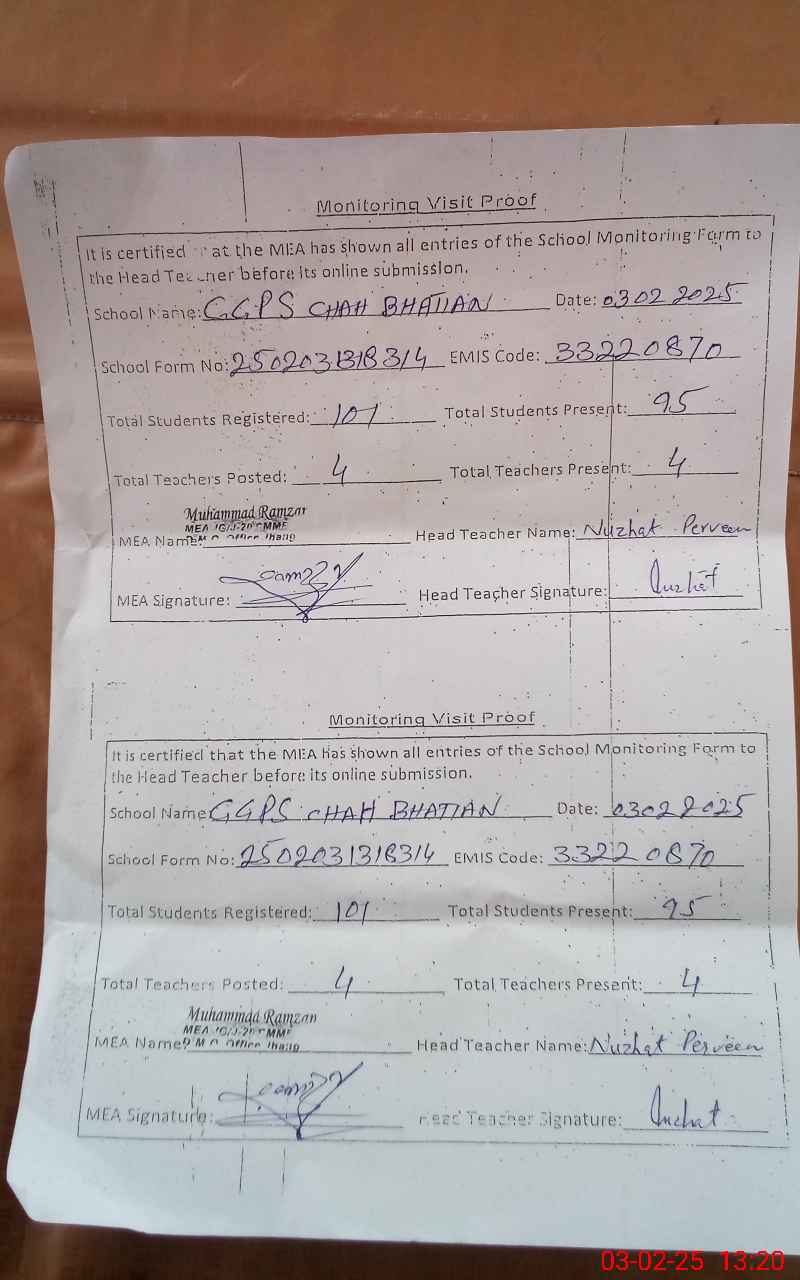 Monitoring Visit Proof
It is certified at the MEA has shown all entries of the School Monitoring Form to
the Head Teacher before its online submission.
School Name: GGPS CHAH BHATIAN Date: 03 02 2025
School Form No: 2502031318314 EMIS Code: 33220870
Total Students Registered: 101 Total Students Present: 95
Total Teachers Posted: 4 Total Teachers Present: 4
Muhammad Ramzan
MEA
MEA Name: Office Jhang Head Teacher Name: Nuzhat Perveen
MEA Signature: Head Teacher Signature: Nuzhat
Monitoring Visit Proof
It is certified that the MEA has shown all entries of the School Monitoring Form to
the Head Teacher before its online submission.
School Name GGPS CHAH BHATIAN Date: 03022025
School Form No: 2502031318314 EMIS Code: 33220870
Total Students Registered: 101 Total Students Present: 95
Total Teachers Posted: 4 Total Teachers Present: 4
Muhammad Ramzan
MEA
MEA Name Office Jhang Head Teacher Name: Nuzhat Perveen
MEA Signature: Head Teacher Signature: Nuzhat
03-02-25 13:20